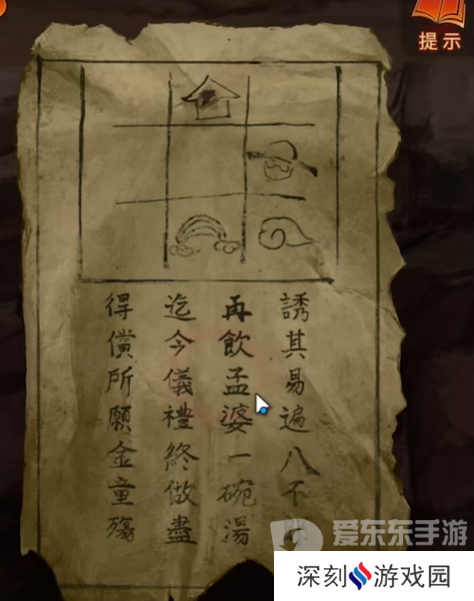 提示
誘其易遍八不
再飲孟婆一碗湯
迄今儀禮終做盡
得償所願金童殤
爱东东手游
深刻游戏园